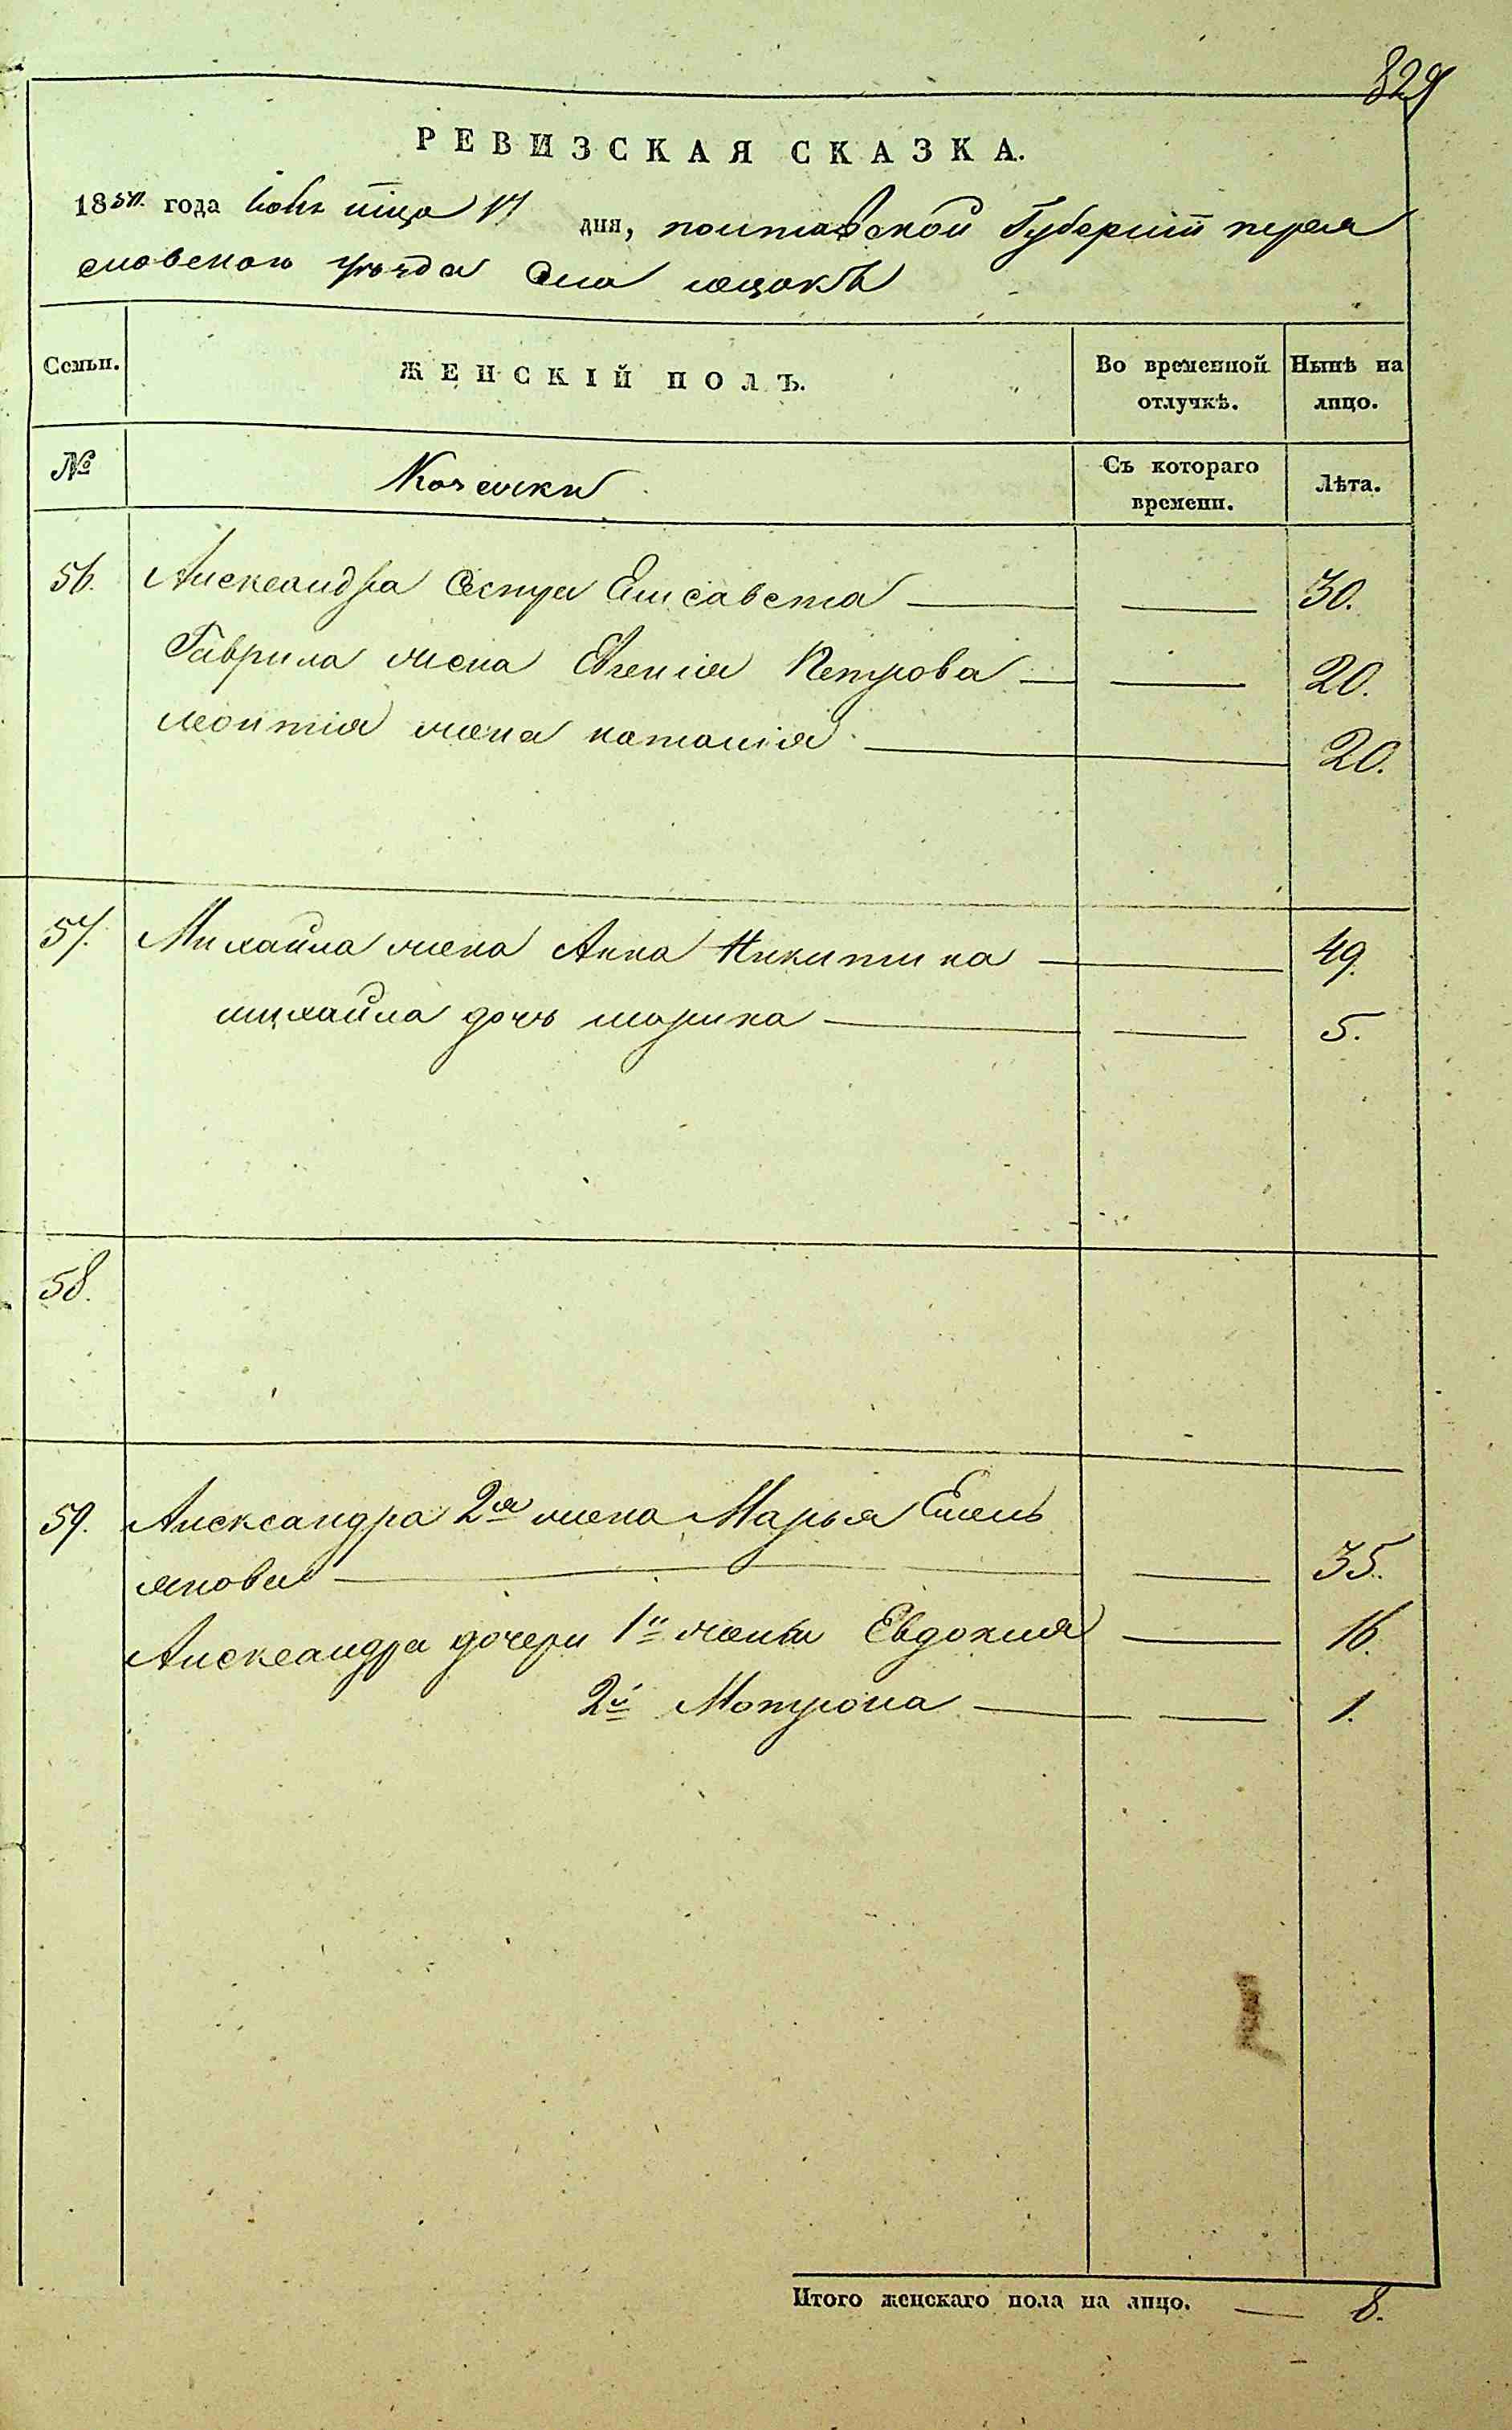 829
РЕВИЗСКАЯ СКАЗКА.
18 года мца 17 дня, полтавской Губерніи перея
словского уѣзда Села
Семьи. ЖЕНСКІЙ ПОЛЪ. Во временной отлучкѣ. Нынѣ на лицо.
№ Козачки Съ котораго времени. Лѣта.
56. Александра Сестра Елисавета 30.
Гаврила жена Евгенія Петрова 20.
леонтія жена наталія 20.
57. Михайла жена Анна Никитина 49.
михайла дочь марина 5.
58.
59. Александра 2я жена Марья Емель
янова 35.
Александра дочери 1й жены Евдокия 16.
2й Мотрона 1.
Итого женскаго пола на лицо. 8.